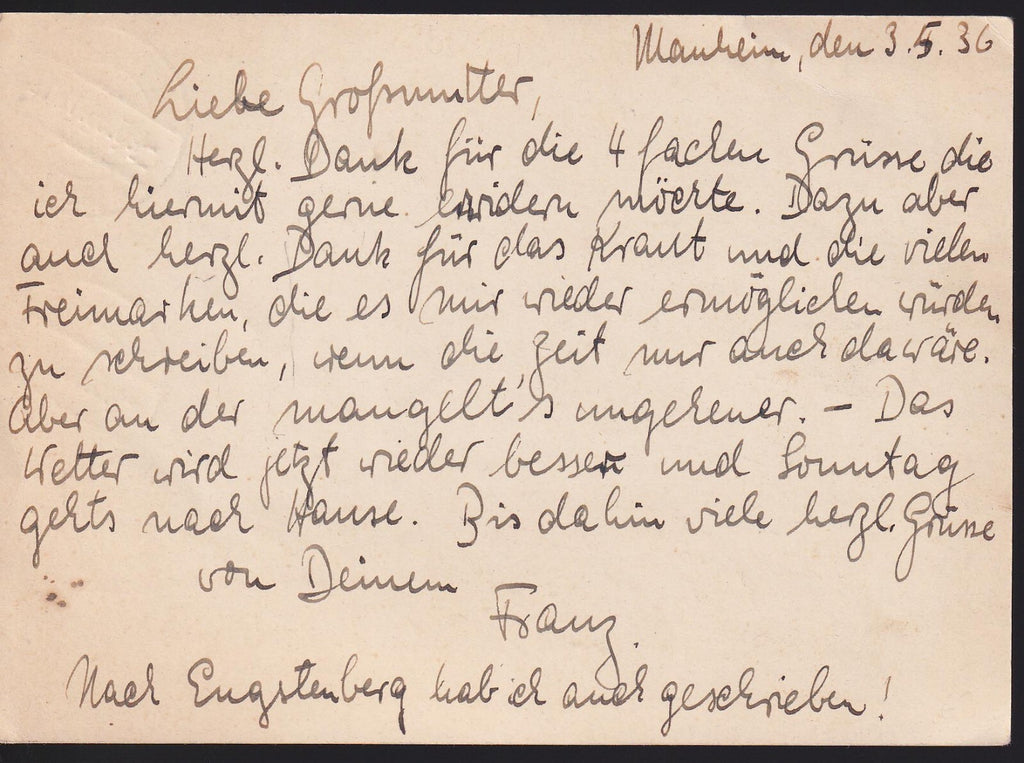 Manheim, den 3.5.36
Liebe Großmutter,
Herzl. Dank für die 4 fachen Grüsse die
ich hiermit gerne erwidern möchte. Dazu aber
auch herzl. Dank für das Kraut und die vielen
Freimarken, die es mir wieder ermöglichen würden
zu schreiben, wenn die Zeit nur auch da wäre.
Aber an der mangelt's ungeheuer. – Das
Wetter wird jetzt wieder besser und Sonntag
gehts nach Hause. Bis dahin viele herzl. Grüsse
von Deinem
Franz.
Nach Engstenberg hab ich auch geschrieben!